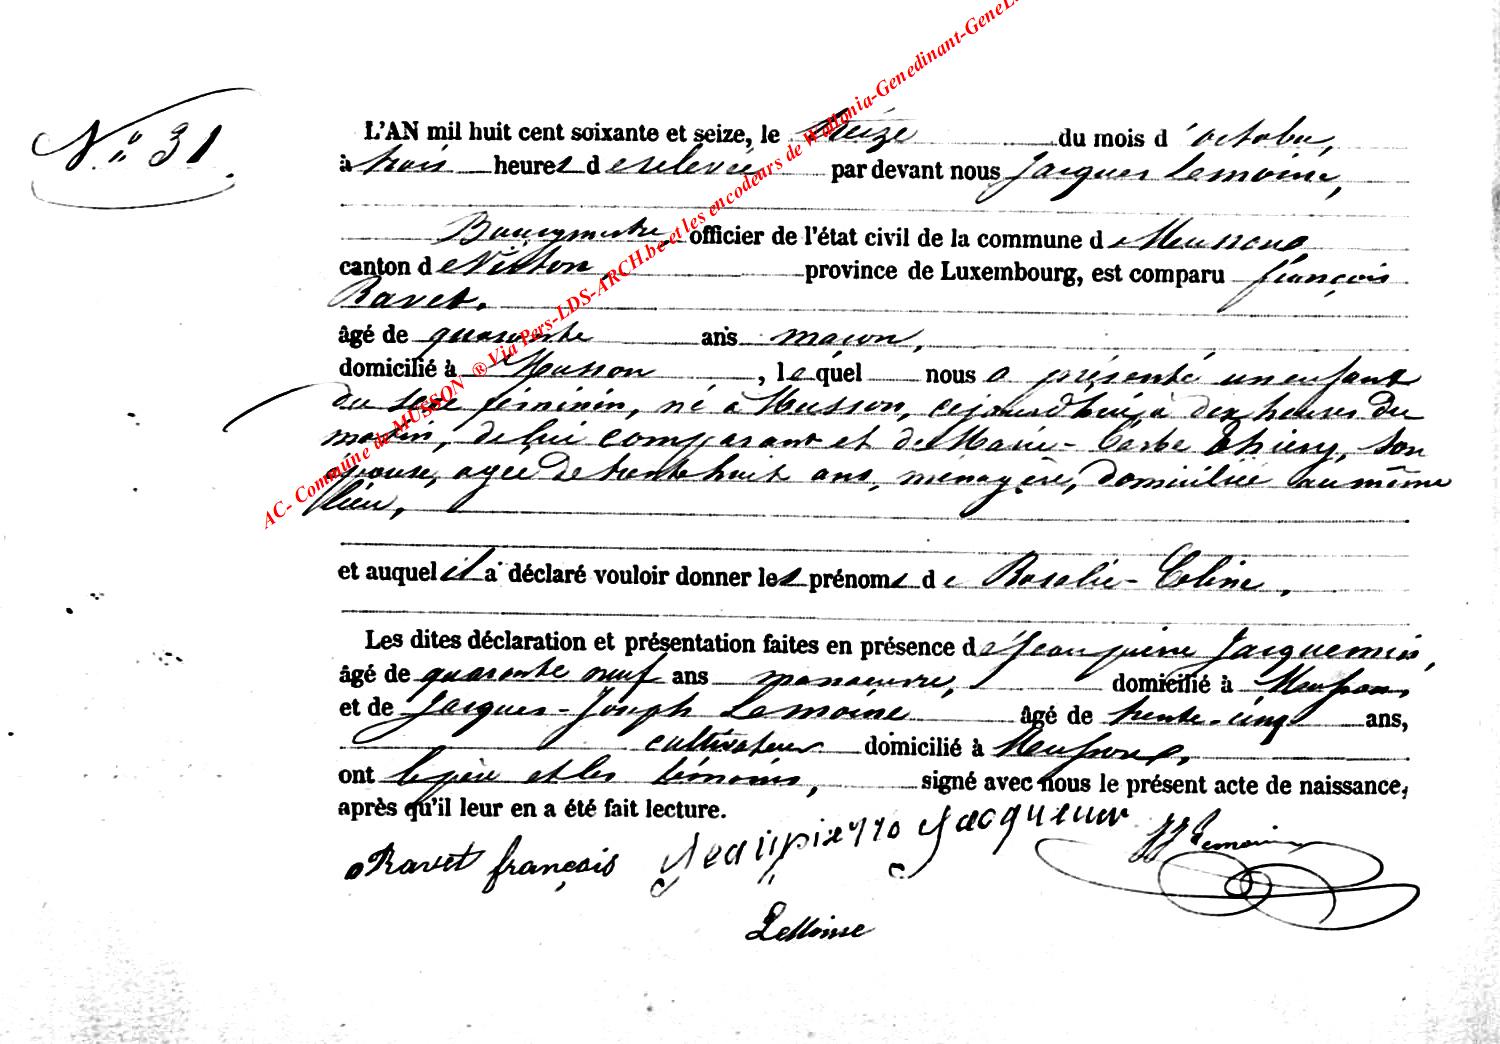 N° 31.
L'AN mil huit cent soixante et seize, le treize du mois d'octobre,
à trois heures de relevée par devant nous Jacques Lemoine,
Bourgmestre officier de l'état civil de la commune de Musson
canton de Virton, province de Luxembourg, est comparu françois
Ravet.
âgé de quarante ans maçon,
domicilié à Musson, lequel nous a présenté un enfant
du sexe féminin, né à Musson, cejourd'hui, à dix heures du
matin, de lui comparant et de Marie-Barbe Thiery, son
épouse, agée de trente huit ans, ménagère, domiciliée au même
lieu,
et auquel il a déclaré vouloir donner les prénoms de Rosalie-Celine,
Les dites déclaration et présentation faites en présence de Jean pierre Jacquemin,
âgé de quarante neuf ans manoeuvre, domicilié à Musson,
et de Jacques-Joseph Lemoine âgé de trente-cinq ans,
cultivateur domicilié à Musson,
ont le père et les témoins, signé avec nous le présent acte de naissance,
après qu'il leur en a été fait lecture.
Ravet françois Jeanpierre Jacquemin JJ Lemoine
Lemoine
AC- Commune de MUSSON ® Via Pers-LDS-ARCH.be et les encodeurs de Wallonia-Genedinant-GeneL